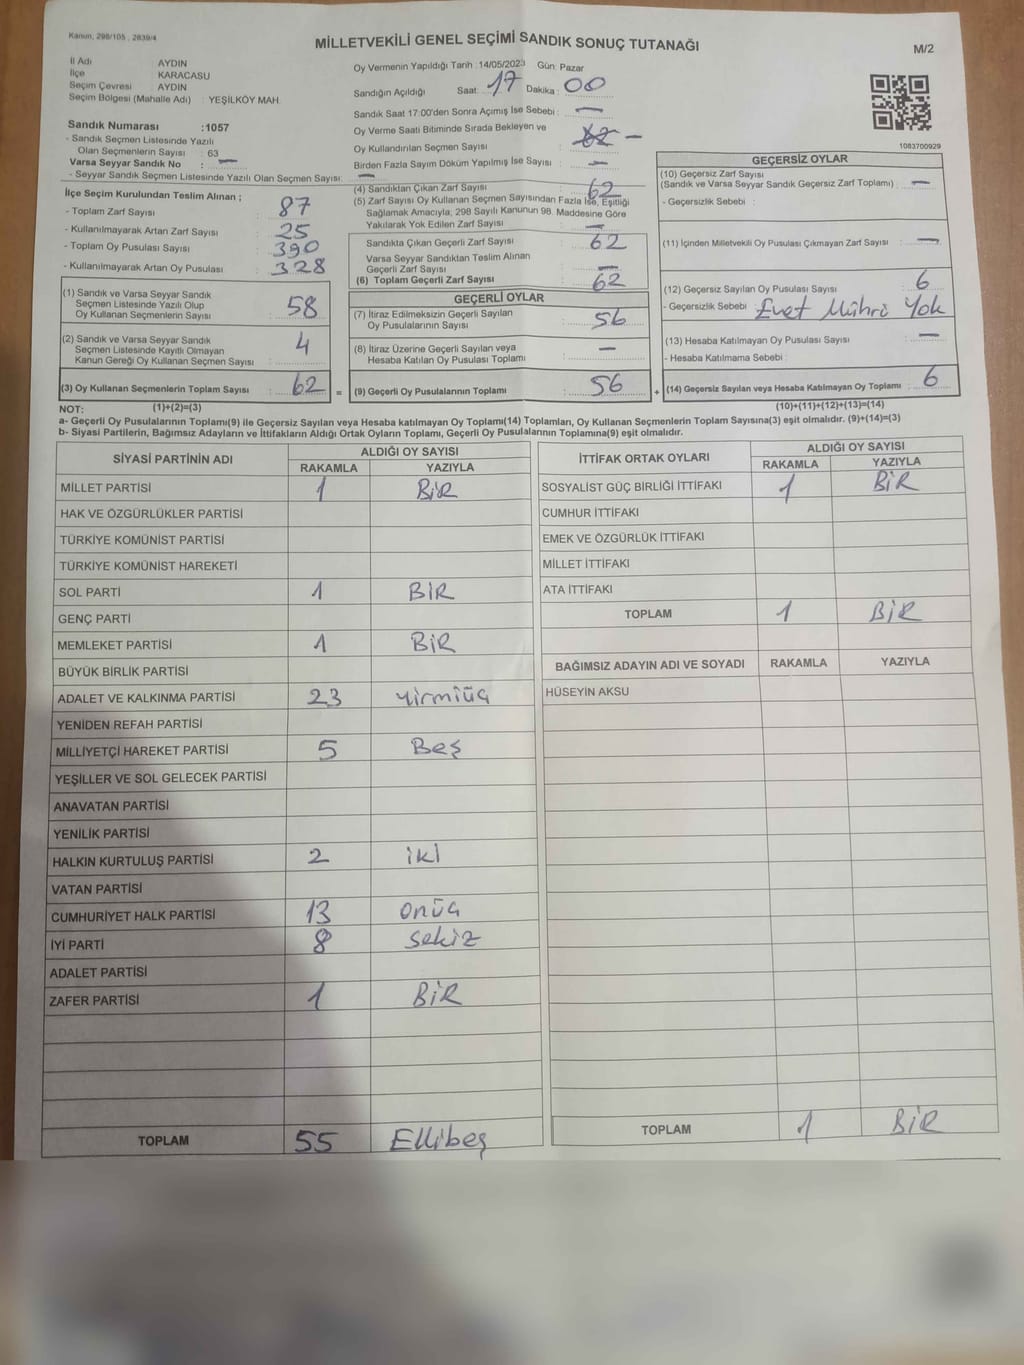 Kanun, 298/105 , 2839/4
MİLLETVEKİLİ GENEL SEÇİMİ SANDIK SONUÇ TUTANAĞI
M/2
İl Adı AYDIN
İlçe KARACASU
Seçim Çevresi AYDIN
Seçim Bölgesi (Mahalle Adı) : YEŞİLKÖY MAH.
Sandık Numarası :1057
- Sandık Seçmen Listesinde Yazılı
Olan Seçmenlerin Sayısı : 63
Varsa Seyyar Sandık No : —
- Seyyar Sandık Seçmen Listesinde Yazılı Olan Seçmen Sayısı: —
Oy Vermenin Yapıldığı Tarih :14/05/2023 Gün: Pazar
Sandığın Açıldığı Saat: 17 Dakika : 00
Sandık Saat 17:00'den Sonra Açımış İse Sebebi : —
Oy Verme Saati Bitiminde Sırada Bekleyen ve
Oy Kullandırılan Seçmen Sayısı : —
Birden Fazla Sayım Döküm Yapılmış İse Sayısı : —
1083700929
İlçe Seçim Kurulundan Teslim Alınan ;
- Toplam Zarf Sayısı : 87
- Kullanılmayarak Artan Zarf Sayısı : 25
- Toplam Oy Pusulası Sayısı : 390
- Kullanılmayarak Artan Oy Pusulası : 328
(1) Sandık ve Varsa Seyyar Sandık
Seçmen Listesinde Yazılı Olup
Oy Kullanan Seçmenlerin Sayısı : 58
(2) Sandık ve Varsa Seyyar Sandık
Seçmen Listesinde Kayıtlı Olmayan
Kanun Gereği Oy Kullanan Seçmen Sayısı : 4
(3) Oy Kullanan Seçmenlerin Toplam Sayısı : 62 =
(4) Sandıktan Çıkan Zarf Sayısı : 62
(5) Zarf Sayısı Oy Kullanan Seçmen Sayısından Fazla İse, Eşitliği
Sağlamak Amacıyla, 298 Sayılı Kanunun 98. Maddesine Göre
Yakılarak Yok Edilen Zarf Sayısı : —
Sandıkta Çıkan Geçerli Zarf Sayısı : 62
Varsa Seyyar Sandıktan Teslim Alınan
Geçerli Zarf Sayısı : —
(6) Toplam Geçerli Zarf Sayısı : 62
GEÇERLİ OYLAR
(7) İtiraz Edilmeksizin Geçerli Sayılan
Oy Pusulalarının Sayısı : 56
(8) İtiraz Üzerine Geçerli Sayılan veya
Hesaba Katılan Oy Pusulası Toplamı : —
(9) Geçerli Oy Pusulalarının Toplamı : 56 +
GEÇERSİZ OYLAR
(10) Geçersiz Zarf Sayısı
(Sandık ve Varsa Seyyar Sandık Geçersiz Zarf Toplamı) : —
- Geçersizlik Sebebi :
(11) İçinden Milletvekili Oy Pusulası Çıkmayan Zarf Sayısı : —
(12) Geçersiz Sayılan Oy Pusulası Sayısı : 6
- Geçersizlik Sebebi : Evet Mührü Yok
(13) Hesaba Katılmayan Oy Pusulası Sayısı : —
- Hesaba Katılmama Sebebi :
(14) Geçersiz Sayılan veya Hesaba Katılmayan Oy Toplamı : 6
NOT: (1)+(2)=(3)
(10)+(11)+(12)+(13)=(14)
a- Geçerli Oy Pusulalarının Toplamı(9) ile Geçersiz Sayılan veya Hesaba katılmayan Oy Toplamı(14) Toplamları, Oy Kullanan Seçmenlerin Toplam Sayısına(3) eşit olmalıdır. (9)+(14)=(3)
b- Siyasi Partilerin, Bağımsız Adayların ve İttifakların Aldığı Ortak Oyların Toplamı, Geçerli Oy Pusulalarının Toplamına(9) eşit olmalıdır.
SİYASİ PARTİNİN ADI ALDIĞI OY SAYISI
RAKAMLA YAZIYLA
MİLLET PARTİSİ 1 BİR
HAK VE ÖZGÜRLÜKLER PARTİSİ
TÜRKİYE KOMÜNİST PARTİSİ
TÜRKİYE KOMÜNİST HAREKETİ
SOL PARTİ 1 BİR
GENÇ PARTİ
MEMLEKET PARTİSİ 1 BİR
BÜYÜK BİRLİK PARTİSİ
ADALET VE KALKINMA PARTİSİ 23 Yirmiüç
YENİDEN REFAH PARTİSİ
MİLLİYETÇİ HAREKET PARTİSİ 5 Beş
YEŞİLLER VE SOL GELECEK PARTİSİ
ANAVATAN PARTİSİ
YENİLİK PARTİSİ
HALKIN KURTULUŞ PARTİSİ 2 iki
VATAN PARTİSİ
CUMHURİYET HALK PARTİSİ 13 Onüç
İYİ PARTİ 8 Sekiz
ADALET PARTİSİ
ZAFER PARTİSİ 1 BİR
TOPLAM 55 Ellibeş
İTTİFAK ORTAK OYLARI ALDIĞI OY SAYISI
RAKAMLA YAZIYLA
SOSYALİST GÜÇ BİRLİĞİ İTTİFAKI 1 BİR
CUMHUR İTTİFAKI
EMEK VE ÖZGÜRLÜK İTTİFAKI
MİLLET İTTİFAKI
ATA İTTİFAKI
TOPLAM 1 BİR
BAĞIMSIZ ADAYIN ADI VE SOYADI RAKAMLA YAZIYLA
HÜSEYİN AKSU
TOPLAM 1 BİR